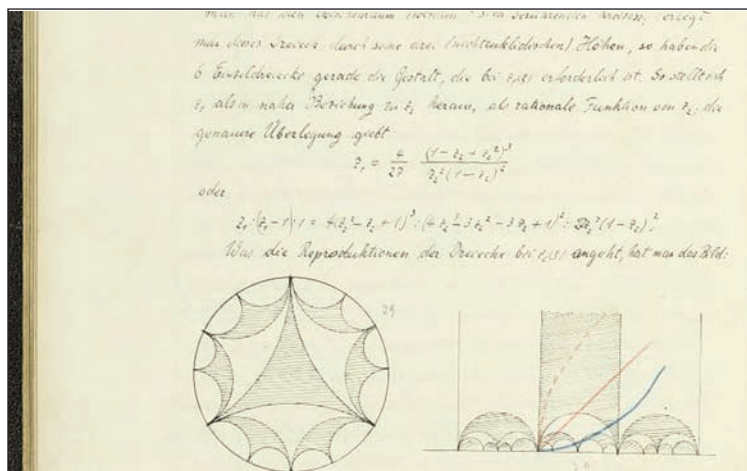 man hat den Zwischenraum zwischen 3 sich berührenden Kreisen; zerlegt
man dieses Dreieck durch seine drei (nichteuklidischen) Höhen, so haben die
6 Einzeldreiecke gerade die Gestalt, die bei z₁(s) erforderlich ist. So stellt sich
z₁ als in naher Beziehung zu z₂ heraus, als rationale Funktion von z₂; die
genauere Überlegung giebt
z₁ = 4/27 (1 - z₂ + z₂²)³ / z₂²(1 - z₂)²
oder
z₁ : (z₁ - 1) : 1 = 4(z₂² - z₂ + 1)³ : (z₂³ - 3z₂² - 3z₂ + 1)² : z₂²(1 - z₂)²
Was die Reproduktionen der Dreiecke bei z₂(s) angeht, hat man das Bild: